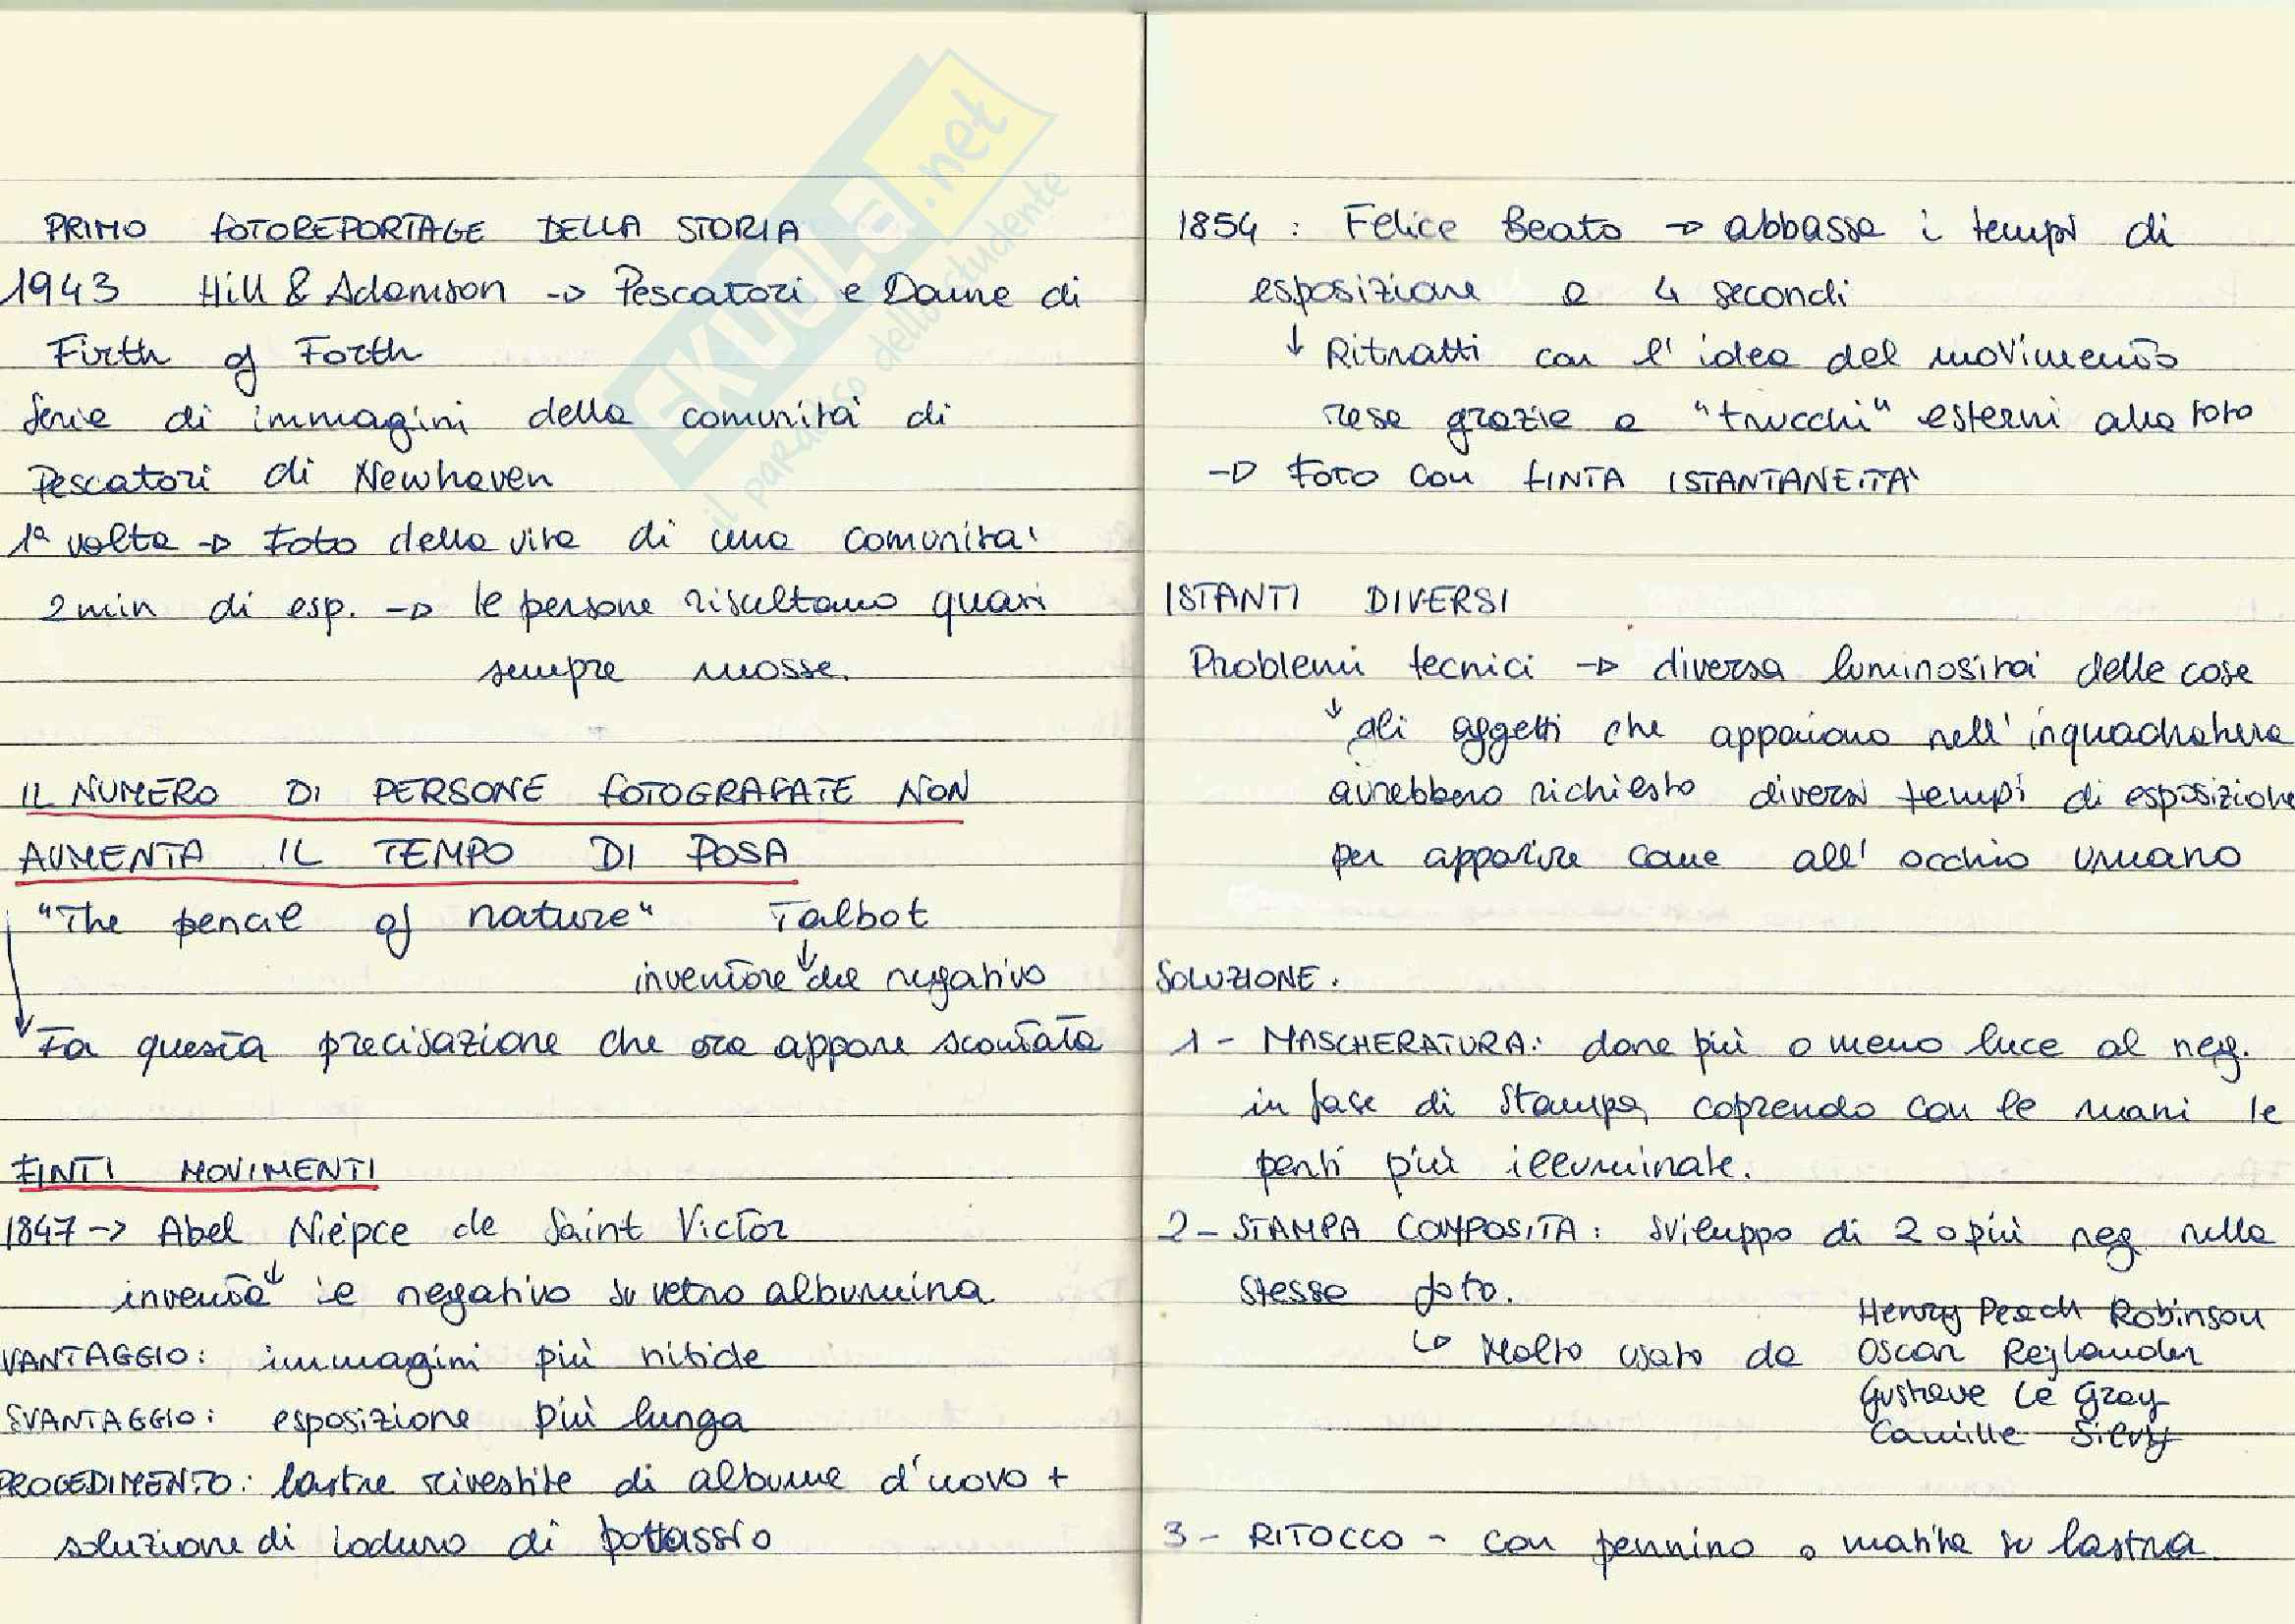 PRIMO FOTOREPORTAGE DELLA STORIA
1943 Hill & Adamson -> Pescatori e Donne di
Firth of Forth
Serie di immagini della comunità di
Pescatori di Newhaven
1ª volta -> Foto della vita di una comunita'
2 min di esp. -> le persone risultano quasi
sempre mosse.
IL NUMERO DI PERSONE FOTOGRAFATE NON
AUMENTA IL TEMPO DI POSA
"The pencil of nature" Talbot
inventore del negativo
Fa questa precisazione che ora appare scontata
FINTI MOVIMENTI
1847 -> Abel Nièpce de Saint Victor
inventa il negativo su vetro albumina
VANTAGGIO: immagini più nitide
SVANTAGGIO: esposizione più lunga
PROCEDIMENTO: lastre rivestite di albume d'uovo +
soluzione di ioduro di potassio
1854 : Felice Beato -> abbassa i tempi di
esposizione a 4 secondi
↓ Ritratti con l'idea del movimento
resa grazie a "trucchi" esterni alla foto
-> Foto con FINTA ISTANTANEITA'
ISTANTI DIVERSI
Problemi tecnici -> diversa luminosità delle cose
↓ gli oggetti che appaiono nell'inquadratura
avrebbero richiesto diversi tempi di esposizione
per apparire come all'occhio umano
SOLUZIONE.
1 - MASCHERATURA: dare più o meno luce al neg.
in fase di stampa, coprendo con le mani le
parti più illuminate.
2 - STAMPA COMPOSITA: sviluppo di 2 o più neg nella
stessa foto.
Henry Peach Robinson
↳ Molto usato da Oscar Rejlander
Gustave Le Gray
Camille Silvy
3 - RITOCCO - con pennino o matita su lastra
SKUOLA.net
il paradiso dello studente